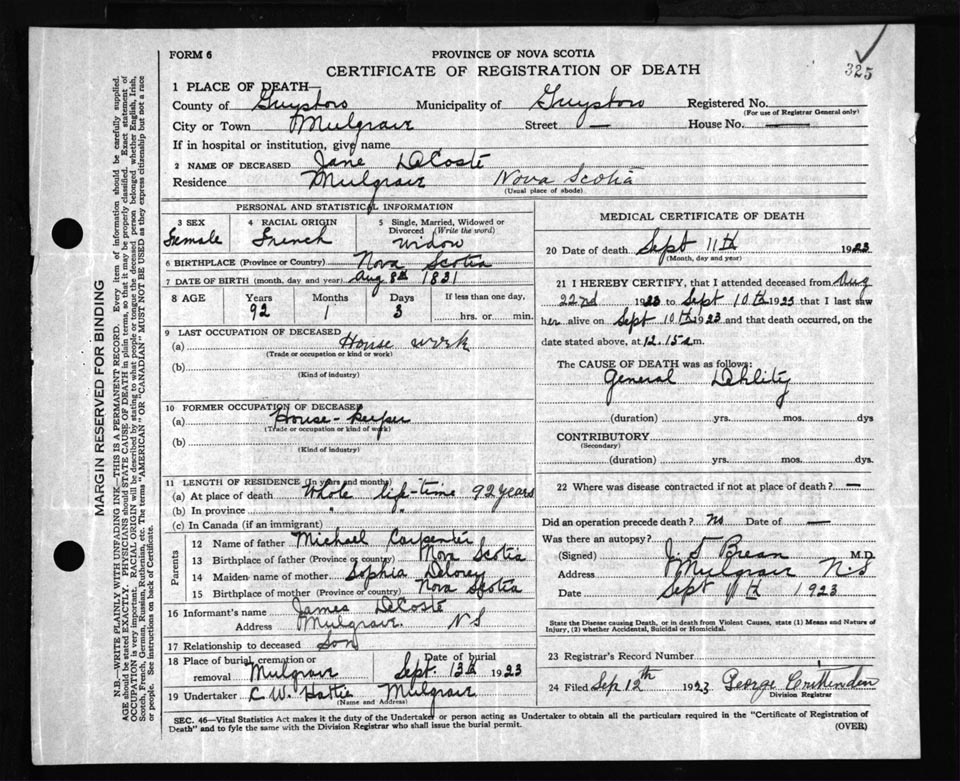 FORM 6
PROVINCE OF NOVA SCOTIA
CERTIFICATE OF REGISTRATION OF DEATH
325
1 PLACE OF DEATH—
County of Guysboro Municipality of Guysboro Registered No.
(For use of Registrar General only)
City or Town Mulgrave Street — House No. —
If in hospital or institution, give name
2 NAME OF DECEASED Jane DeCoste
Residence Mulgrave Nova Scotia
(Usual place of abode)
PERSONAL AND STATISTICAL INFORMATION
3 SEX Female
4 RACIAL ORIGIN French
5 Single, Married, Widowed or Divorced (Write the word) widow
6 BIRTHPLACE (Province or Country) Nova Scotia
7 DATE OF BIRTH (month, day and year) Aug 8th 1831
8 AGE Years Months Days If less than one day,
92 1 3 hrs. or min.
9 LAST OCCUPATION OF DECEASED
(a) House work
(Trade or occupation or kind or work)
(b)
(Kind of industry)
10 FORMER OCCUPATION OF DECEASED
(a) House-keeper
(Trade or occupation or kind of work)
(b)
(Kind of industry)
11 LENGTH OF RESIDENCE (In years and months)
(a) At place of death Whole life-time 92 years
(b) In province " "
(c) In Canada (if an immigrant)
Parents
12 Name of father Michael Carpenter
13 Birthplace of father (Province or country) Nova Scotia
14 Maiden name of mother Sophia Delorey
15 Birthplace of mother (Province or country) Nova Scotia
16 Informant's name James DeCoste
Address Mulgrave. NS
17 Relationship to deceased Son
18 Place of burial, cremation or removal Mulgrave
Date of burial Sept. 13th 1923
19 Undertaker C. W. Hattie Mulgrave
(Name and Address)
MEDICAL CERTIFICATE OF DEATH
20 Date of death Sept 11th 1923
(Month, day and year)
21 I HEREBY CERTIFY, that I attended deceased from Aug
22nd 1923 to Sept 10th 1923 that I last saw
her alive on Sept 10th 1923 and that death occurred, on the
date stated above, at 12.15 a m.
The CAUSE OF DEATH was as follows:
General Debility
(duration) yrs. mos. dys
CONTRIBUTORY
(Secondary)
(duration) yrs. mos. dys.
22 Where was disease contracted if not at place of death? —
Did an operation precede death? no Date of —
Was there an autopsy?
(Signed) J. S Brean M.D.
Address Mulgrave N.S
Date Sept 1923
State the Disease causing Death, or in death from Violent Causes, state (1) Means and Nature of
Injury, (2) whether Accidental, Suicidal or Homicidal.
23 Registrar's Record Number
24 Filed Sep 12th 1923 George Crittenden
Division Registrar
SEC. 46—Vital Statistics Act makes it the duty of the Undertaker or person acting as Undertaker to obtain all the particulars required in the "Certificate of Registration of
Death" and to fyle the same with the Division Registrar who shall issue the burial permit.
(OVER)
MARGIN RESERVED FOR BINDING
N.B.—WRITE PLAINLY WITH UNFADING INK—THIS IS A PERMANENT RECORD. Every item of information should be carefully supplied.
AGE should be stated EXACTLY. PHYSICIANS should STATE CAUSE OF DEATH in plain terms, so that it may be properly classified. Exact statement of
OCCUPATION is very important. RACIAL ORIGIN will be described by stating to what people or tongue the deceased person belonged whether English, Irish,
Scotch, French, German, Russian, Ruthenian, etc. The terms "AMERICAN" OR "CANADIAN" MUST NOT BE USED as they express citizenship but not a race
or people. See instructions on back of Certificate.